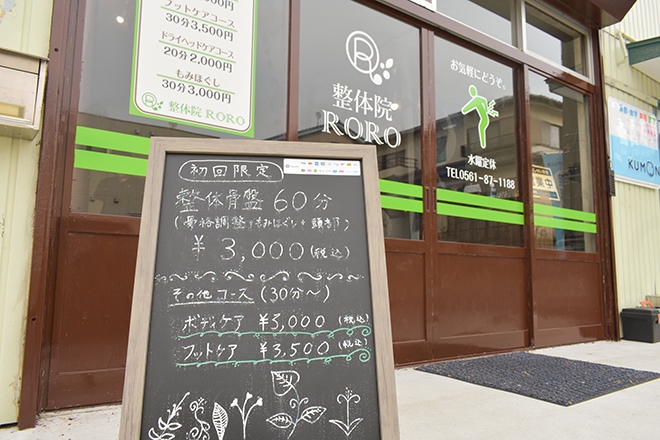 フットケアコース
30分3,500円
ドライヘッドケアコース
20分2,000円
もみほぐし
30分3,000円
整体院 RORO
整体院
RORO
お気軽にどうぞ。
水曜定休
TEL0561-87-1188
KUMON
初回限定
整体骨盤 60分
(骨格調整+もみほぐし+頭部)
¥3,000(税込)
その他コース (30分〜)
ボディケア ¥3,000 (税込)
フットケア ¥3,500 (税込)